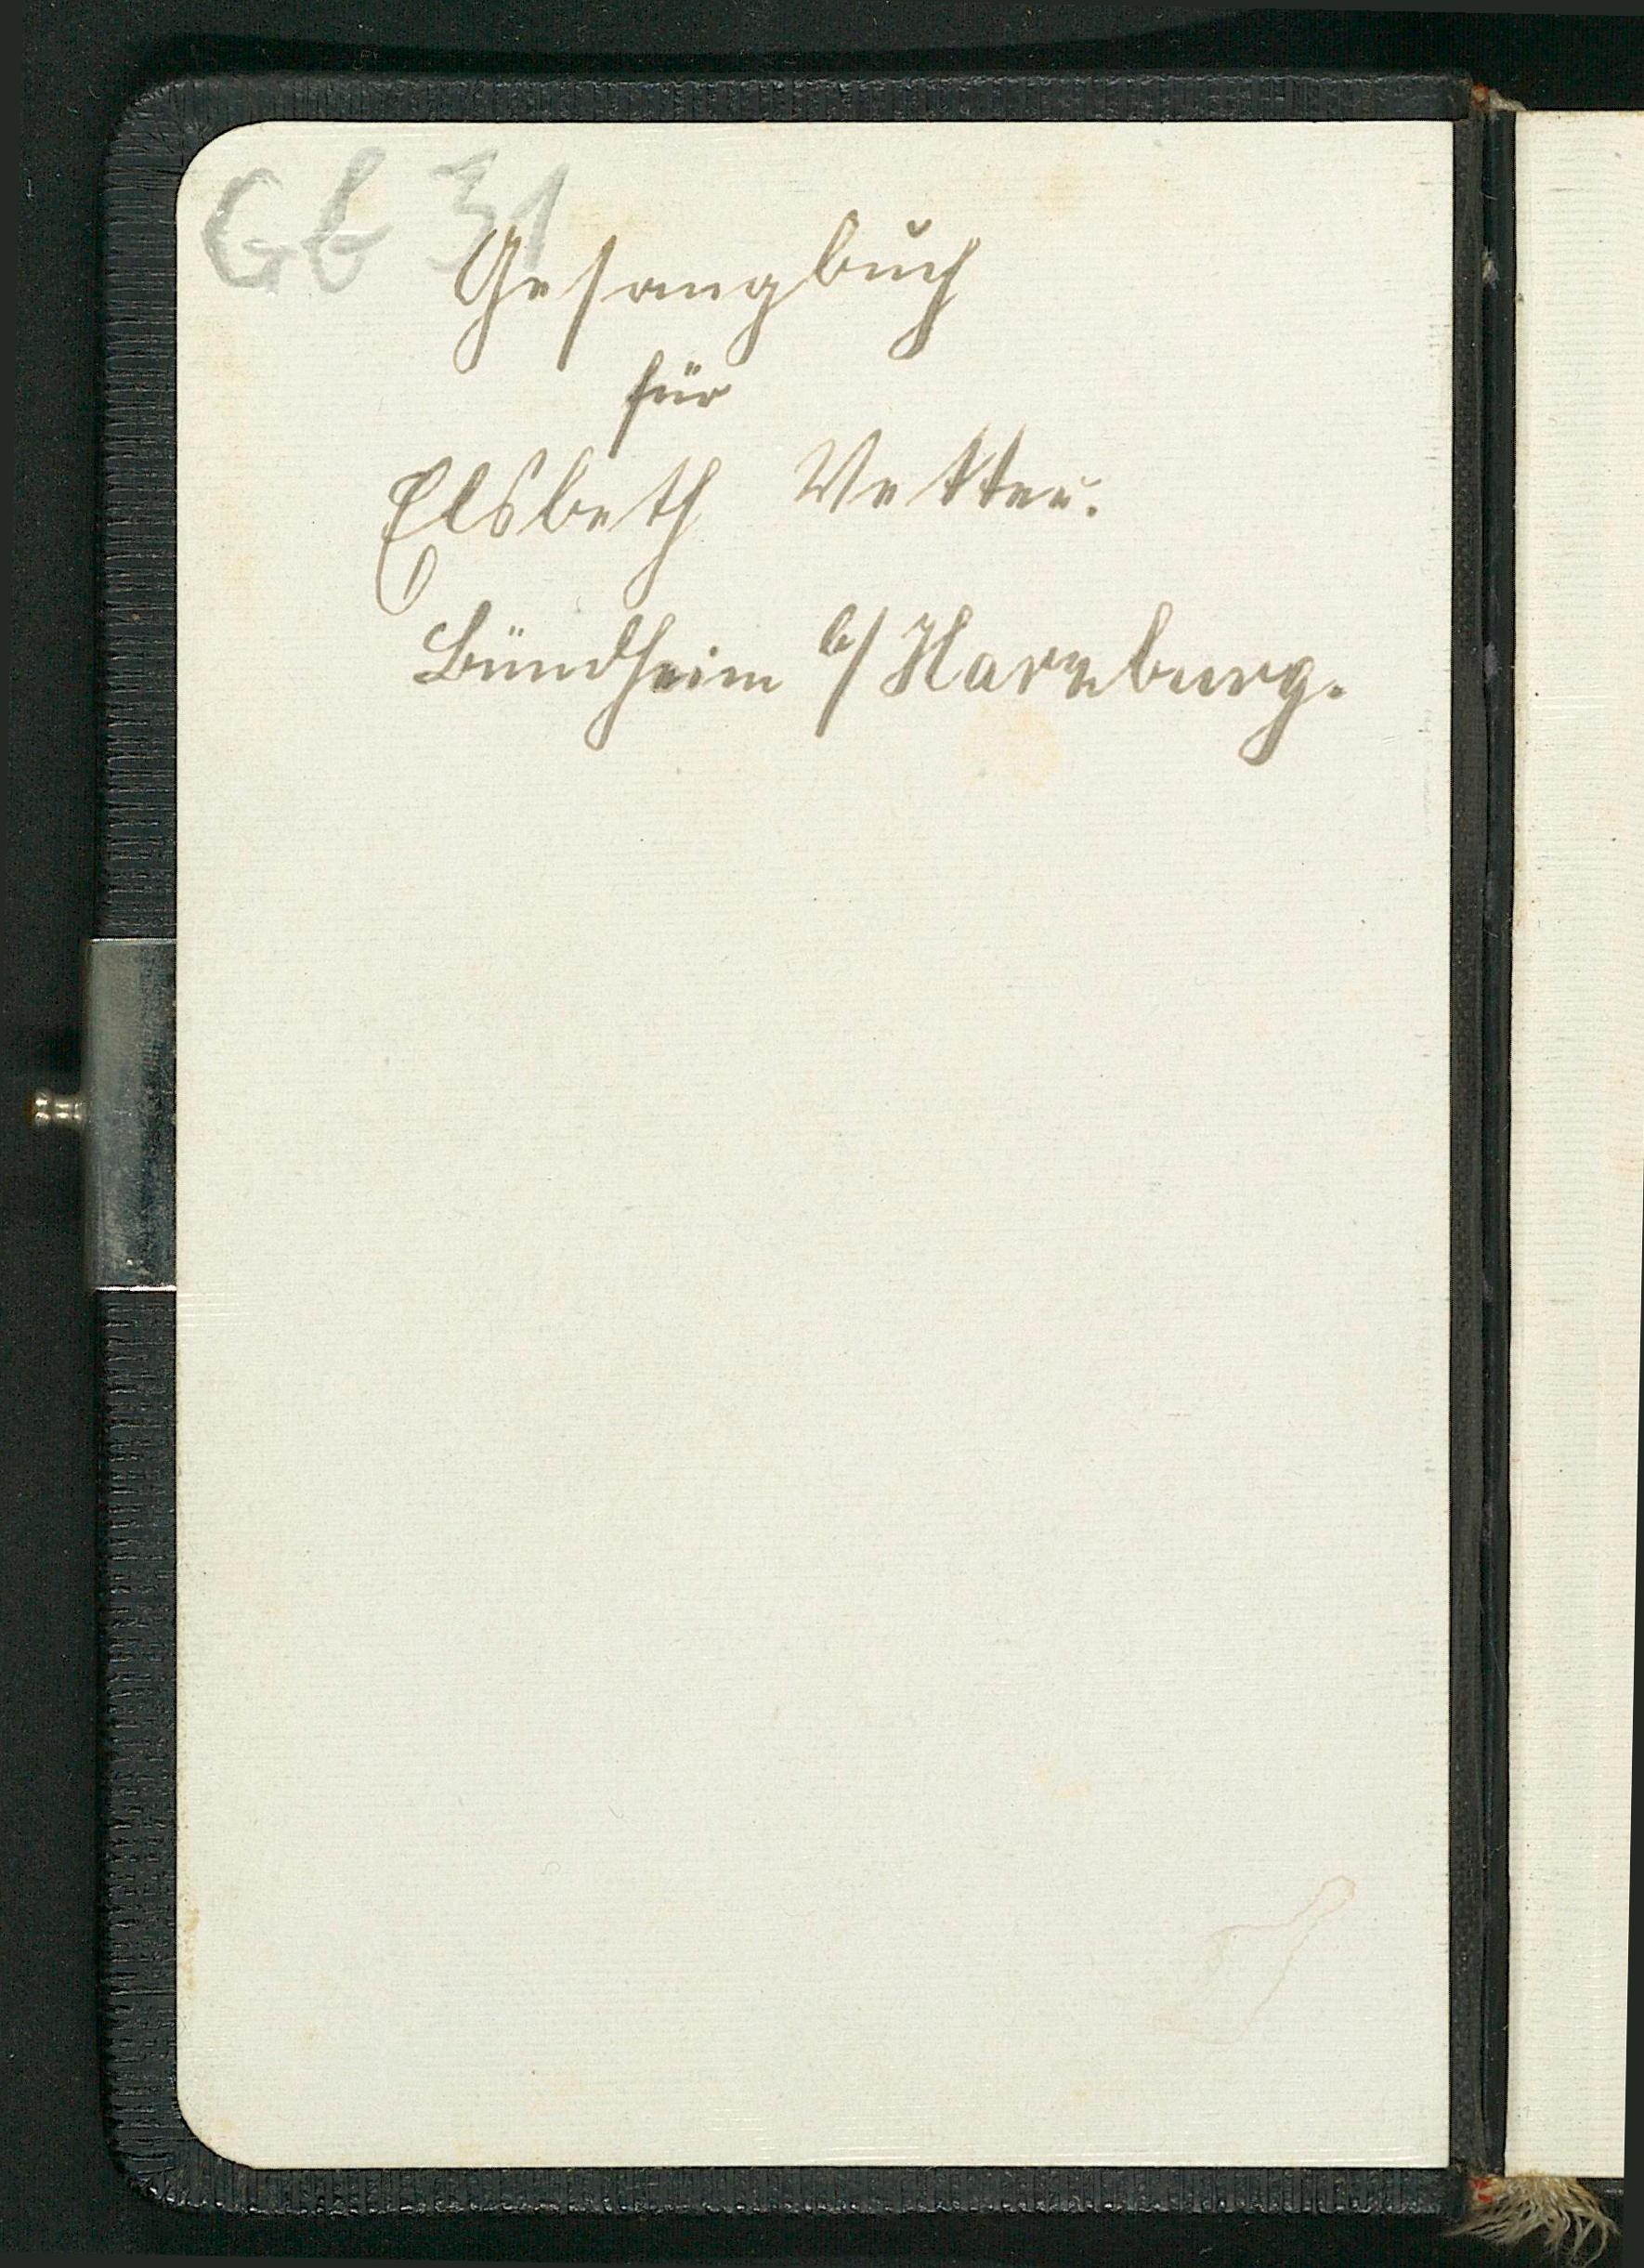 Gb 31
Gesangbuch
für
Elsbeth Vetter.
Bündheim b/ Harzburg.